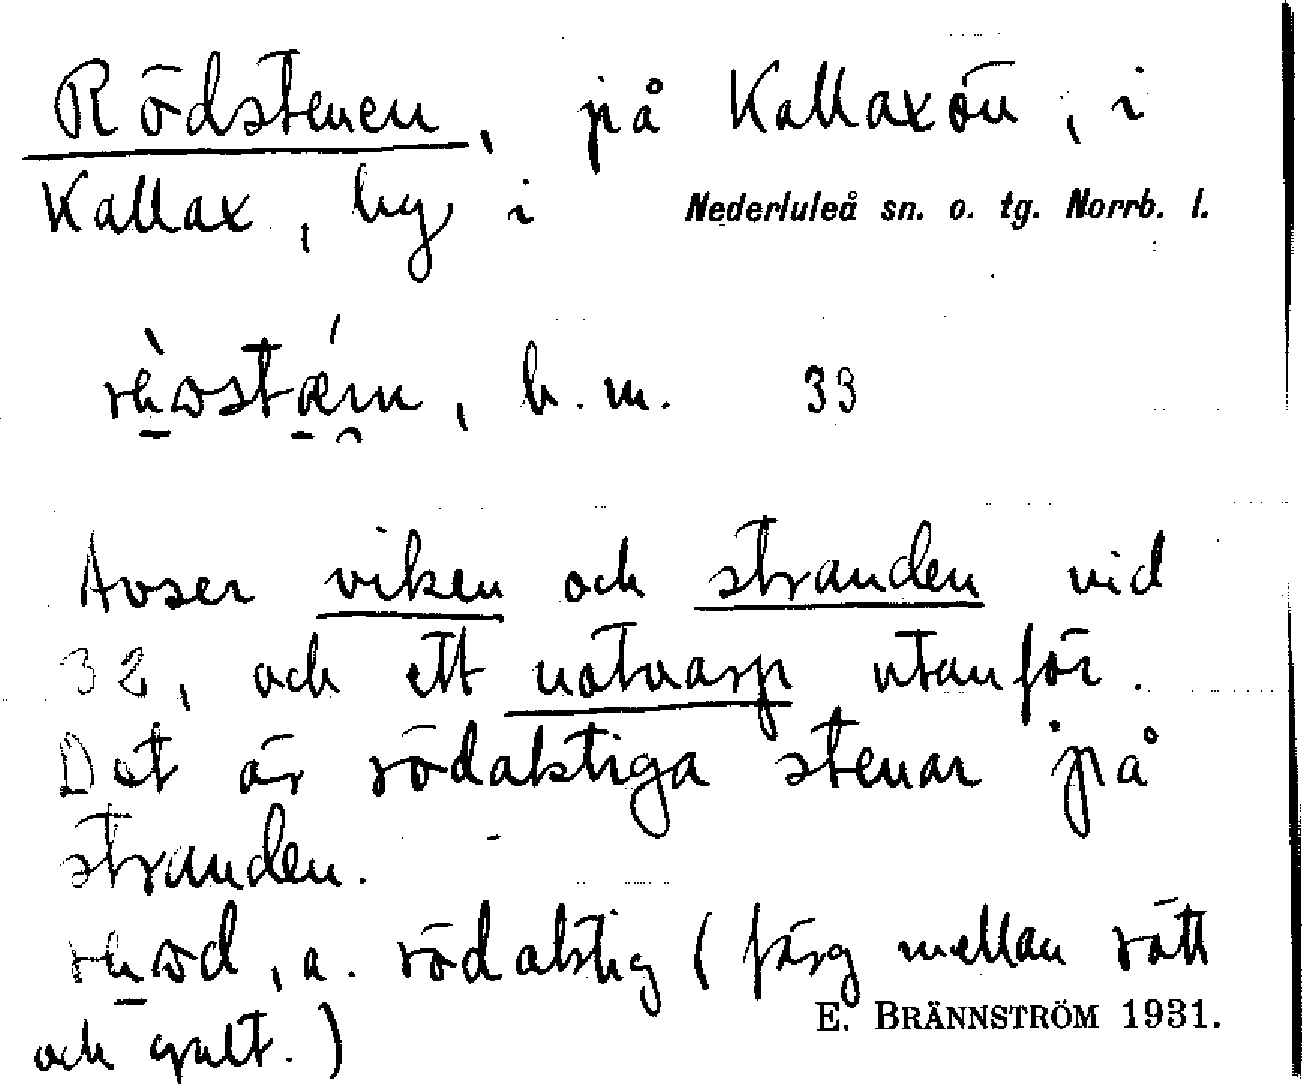 Rödstenen, på Kallaxön, i
Kallax, by i Nederluleå sn. o. tg. Norrb. l.
b. m. 33
Avser viken och stranden vid
32, och ett notvarp utanför.
Det är rödaktiga stenar på
stranden.
a. rödaktig (färg mellan rött
och gult.)
E. BRÄNNSTRÖM 1931.